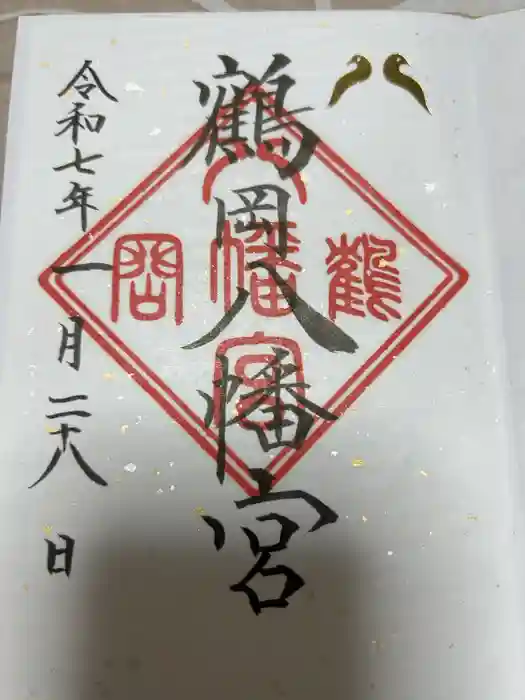 鶴岡八幡宮
令和七年一月二十八日
鶴
八
幡
宮
岡